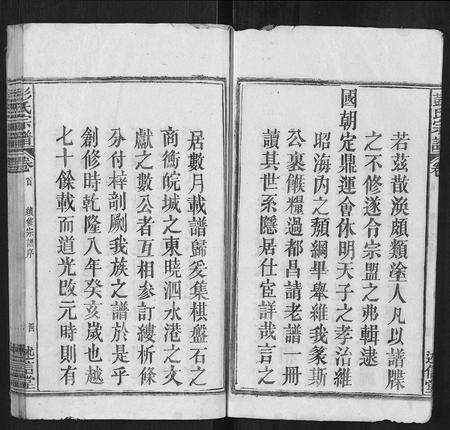 若茲散渙頗類塗人凡以譜牒
之不修遂令宗盟之弗輯逮
國朝定鼎運會休明天子之孝治維
昭海內之頹綱畢舉維我篆斯
公裹餱糧過都昌請老譜一冊
讀其世系隱居仕宦詳哉言之
居數月載譜歸爰集棋盤石之
商衡皖城之東曉泗水港之文
獻之數公者互相參訂縷析條
分付梓剞劂我族之譜於是乎
創修時乾隆八年癸亥歲也越
七十餘載而道光改元時則有
彭氏宗譜
卷首
續修宗譜序
四
述信堂